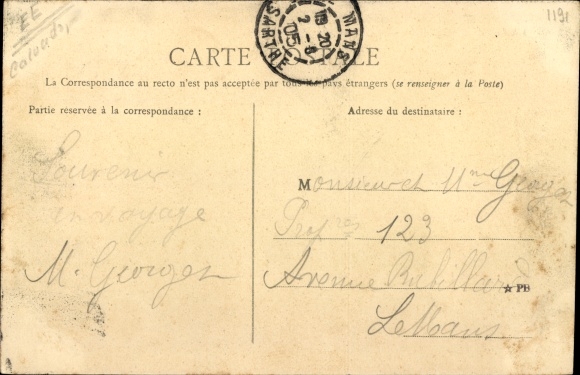 EE
Calvados
1191
MANS
SARTHE
15 20
2 - 8
05
CARTE POSTALE
La Correspondance au recto n'est pas acceptée par tous les pays étrangers (se renseigner à la Poste)
Partie réservée à la correspondance :
Souvenir
en voyage
M. Georges
Adresse du destinataire :
Monsieur et Mme Georges
Prop res 123
Avenue
☆ PB
Le Mans